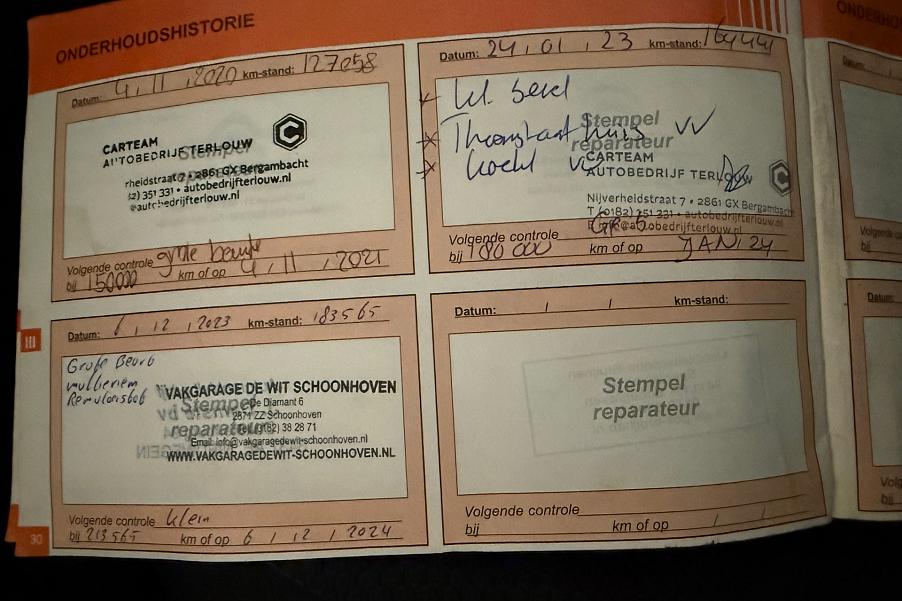 ONDERHOUDSHISTORIE
Datum: 4, 11, 2020 km-stand: 127058
Stempel
CARTEAM
AUTOBEDRIJF TERLOUW
rheidstraat 7 • 2861 GX Bergambacht
82) 351 331 • autobedrijfterlouw.nl
@autobedrijfterlouw.nl
Volgende controle grote beurt
bij 150000 km of op 4, 11, 2021
Datum: 24, 01, 23 km-stand:
Stempel
reparateur
CARTEAM
AUTOBEDRIJF TERLOUW
Nijverheidstraat 7 • 2861 GX Bergambacht
T (0182) 351 331 • autobedrijfterlouw.nl
autobedrijfterlouw.nl
Volgende controle
bij 180 000 km of op JAN, 24
Datum: 6, 12, 2023 km-stand: 183565
Grote Beurt
multiriem
Remvloeistof
Stempel
reparateur
VAKGARAGE DE WIT SCHOONHOVEN
De Diamant 6
2871 ZZ Schoonhoven
Tel. (0182) 38 28 71
Email: info@vakgaragedewit-schoonhoven.nl
WWW.VAKGARAGEDEWIT-SCHOONHOVEN.NL
Volgende controle klein
bij 213565 km of op 6, 12, 2024
Datum: / / km-stand:
Stempel
reparateur
Volgende controle
bij km of op / /
30
III